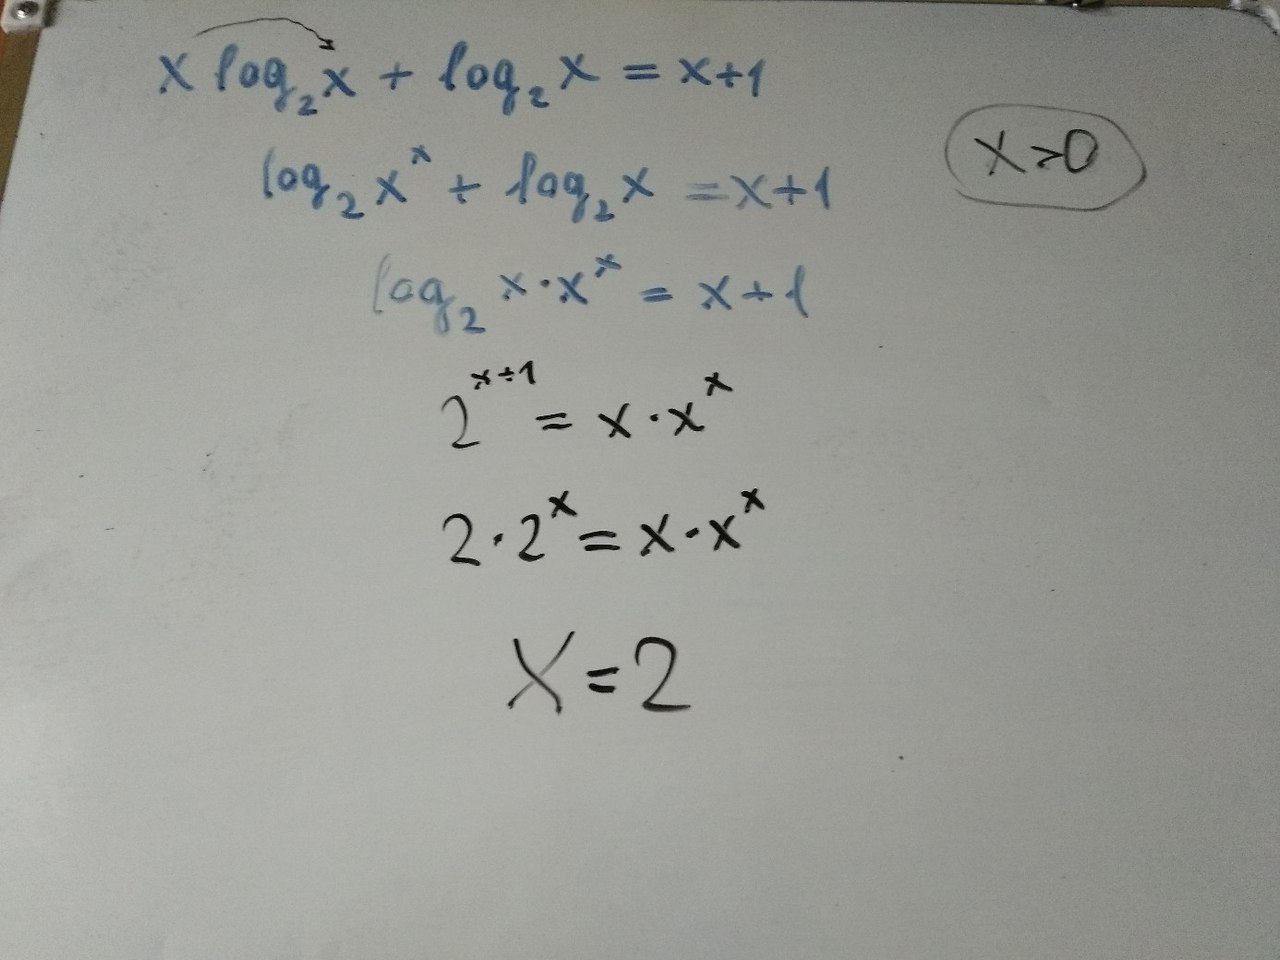 x log₂x + log₂x = x+1
x>0
log₂xˣ + log₂x = x+1
log₂x·xˣ = x+1
2ˣ⁺¹ = x·xˣ
2·2ˣ = x·xˣ
x=2